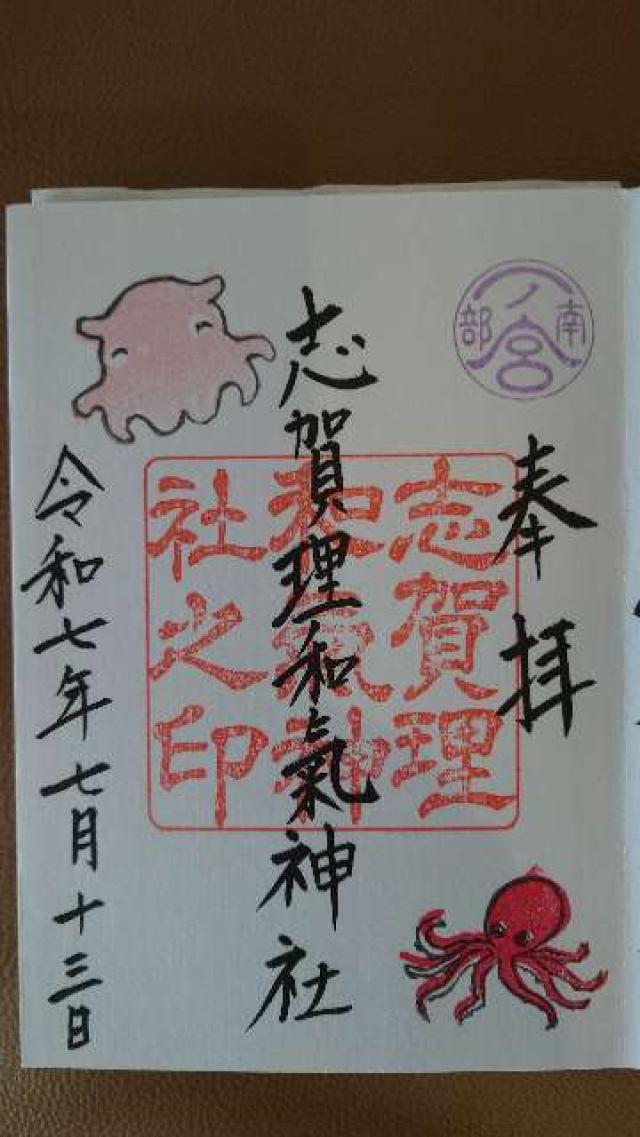 南部一ノ宮
奉拝
志賀理和氣神社
志賀理
和氣神
社之印
令和七年七月十三日